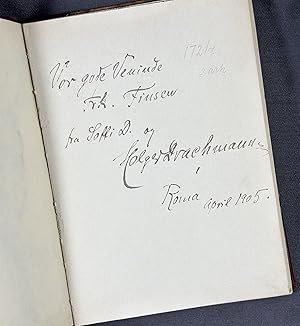 Vor gode Veninde
Frk. Finsen
fra Soffi D. og
Holger Drachmann
i
Roma april 1905.
172/4